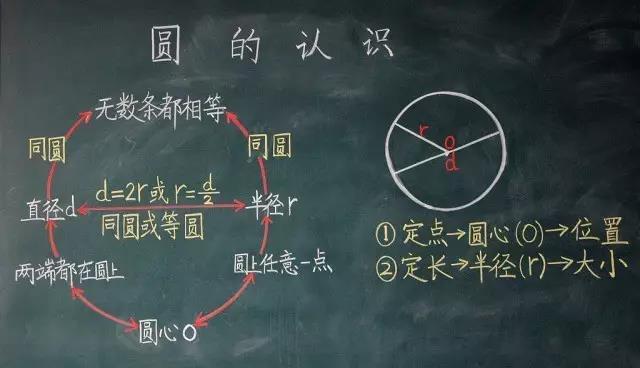 圆的认识
无数条都相等
同圆
同圆
直径d
d=2r或r=d/2
同圆或等圆
半径r
两端都在圆上
圆上任意一点
圆心O
r
O
d
①定点→圆心(O)→位置
②定长→半径(r)→大小